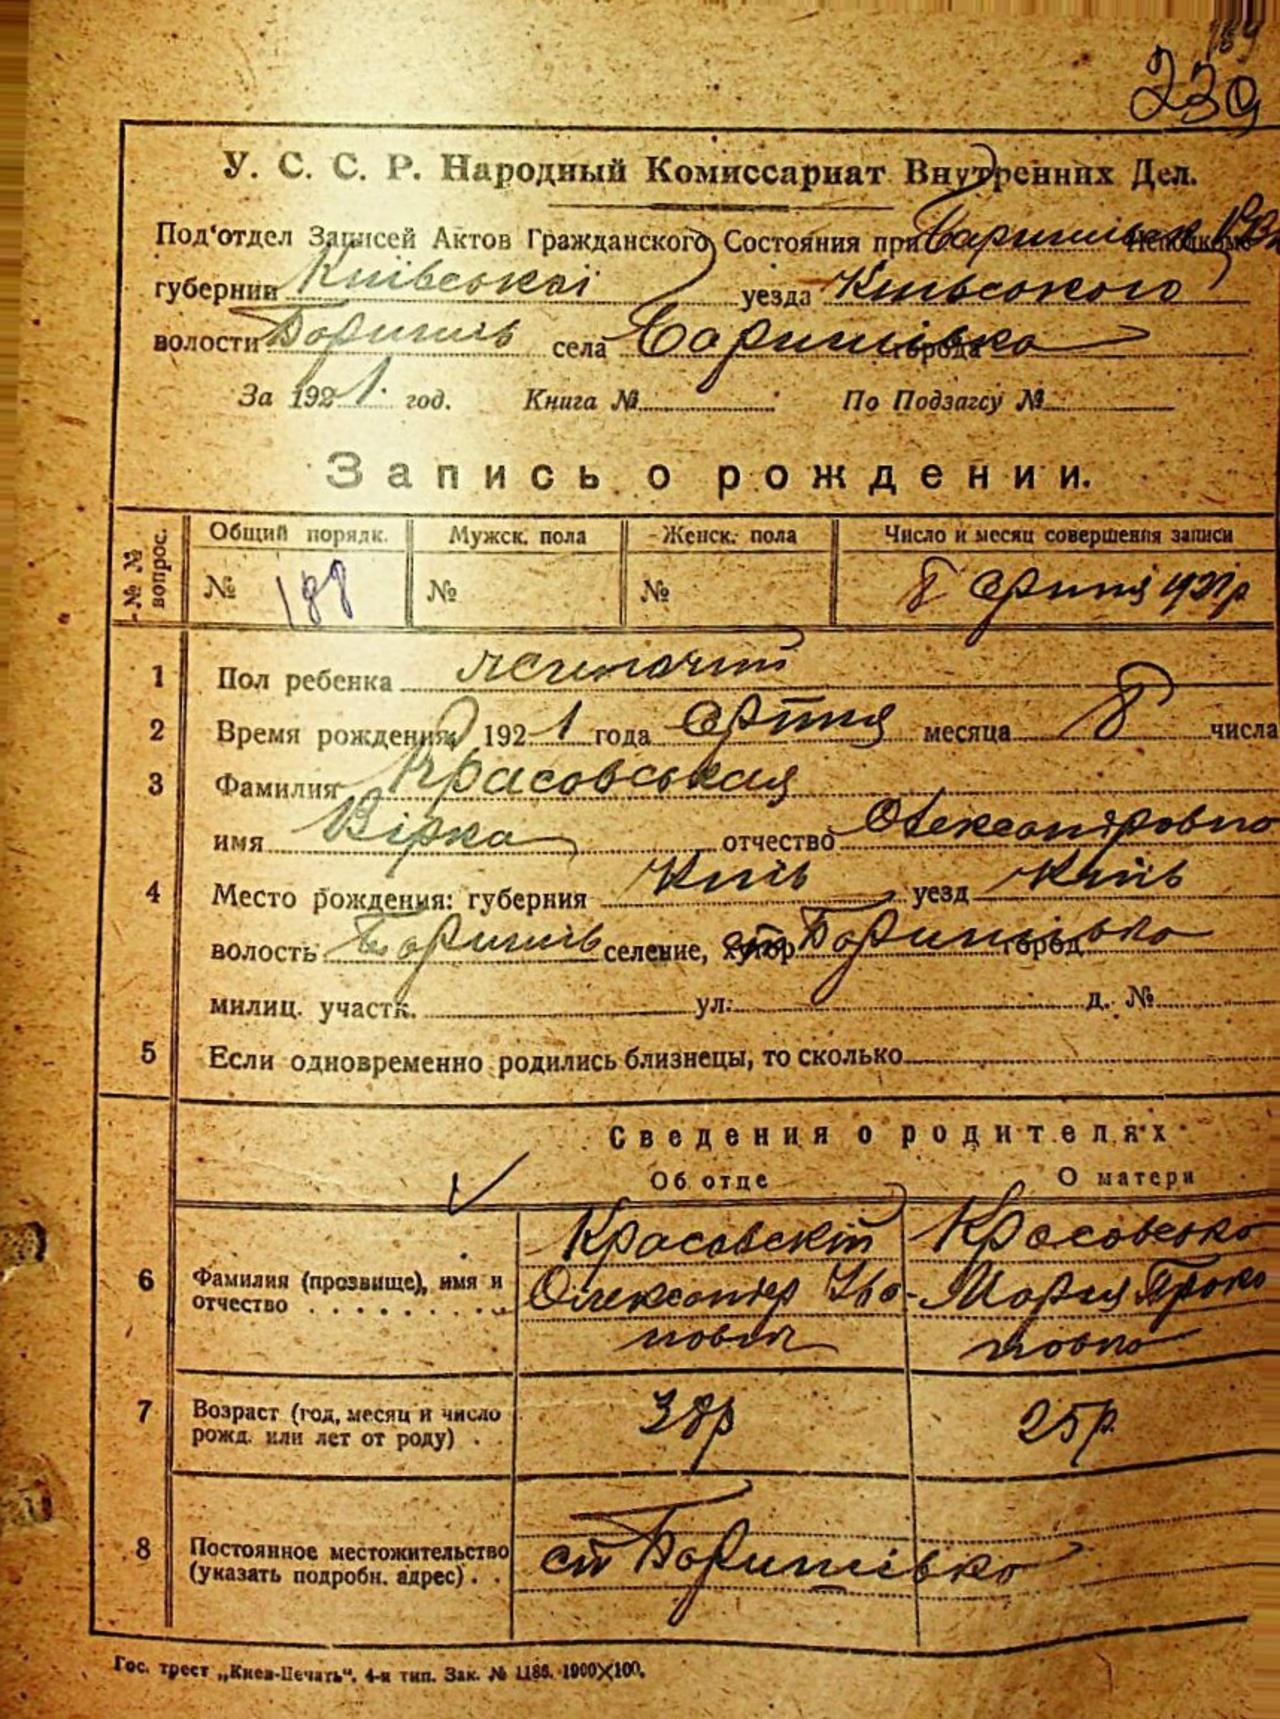 189
239
У. С. С. Р. Народный Комиссариат Внутренних Дел.
Под'отдел Записей Актов Гражданского Состояния при Баришівск.
губернии Київської уезда Київського
волости Баришів села Баришівка города
За 1921. год. Книга № По Подзагсу №
Запись о рождении.
№ № вопрос. Общий порядк. Мужск. пола Женск. пола Число и месяц совершения записи
№ 188 № № 8 серпня 1921 р
1 Пол ребенка жиночий
2 Время рождения 1921 года серпня месяца 8 числа
3 Фамилия Красовськая
имя Вірка отчество Олександровна
4 Место рождения: губерния Київ уезд Київ
волость Баришів селение, хутор Баришівка город
милиц. участк. ул. д. №
5 Если одновременно родились близнецы, то сколько
Сведения о родителях
Об отце О матери
6 Фамилия (прозвище), имя и отчество
Красовскій Красовська
Олександер Ива- Мария Проко
нович повна
7 Возраст (год, месяц и число рожд. или лет от роду) . 38р 25р.
8 Постоянное местожительство (указать подробн. адрес) . . ст Баришівка
Гос. трест „Киев-Печать". 4-я тип. Зак. № 1186. 1900×100.